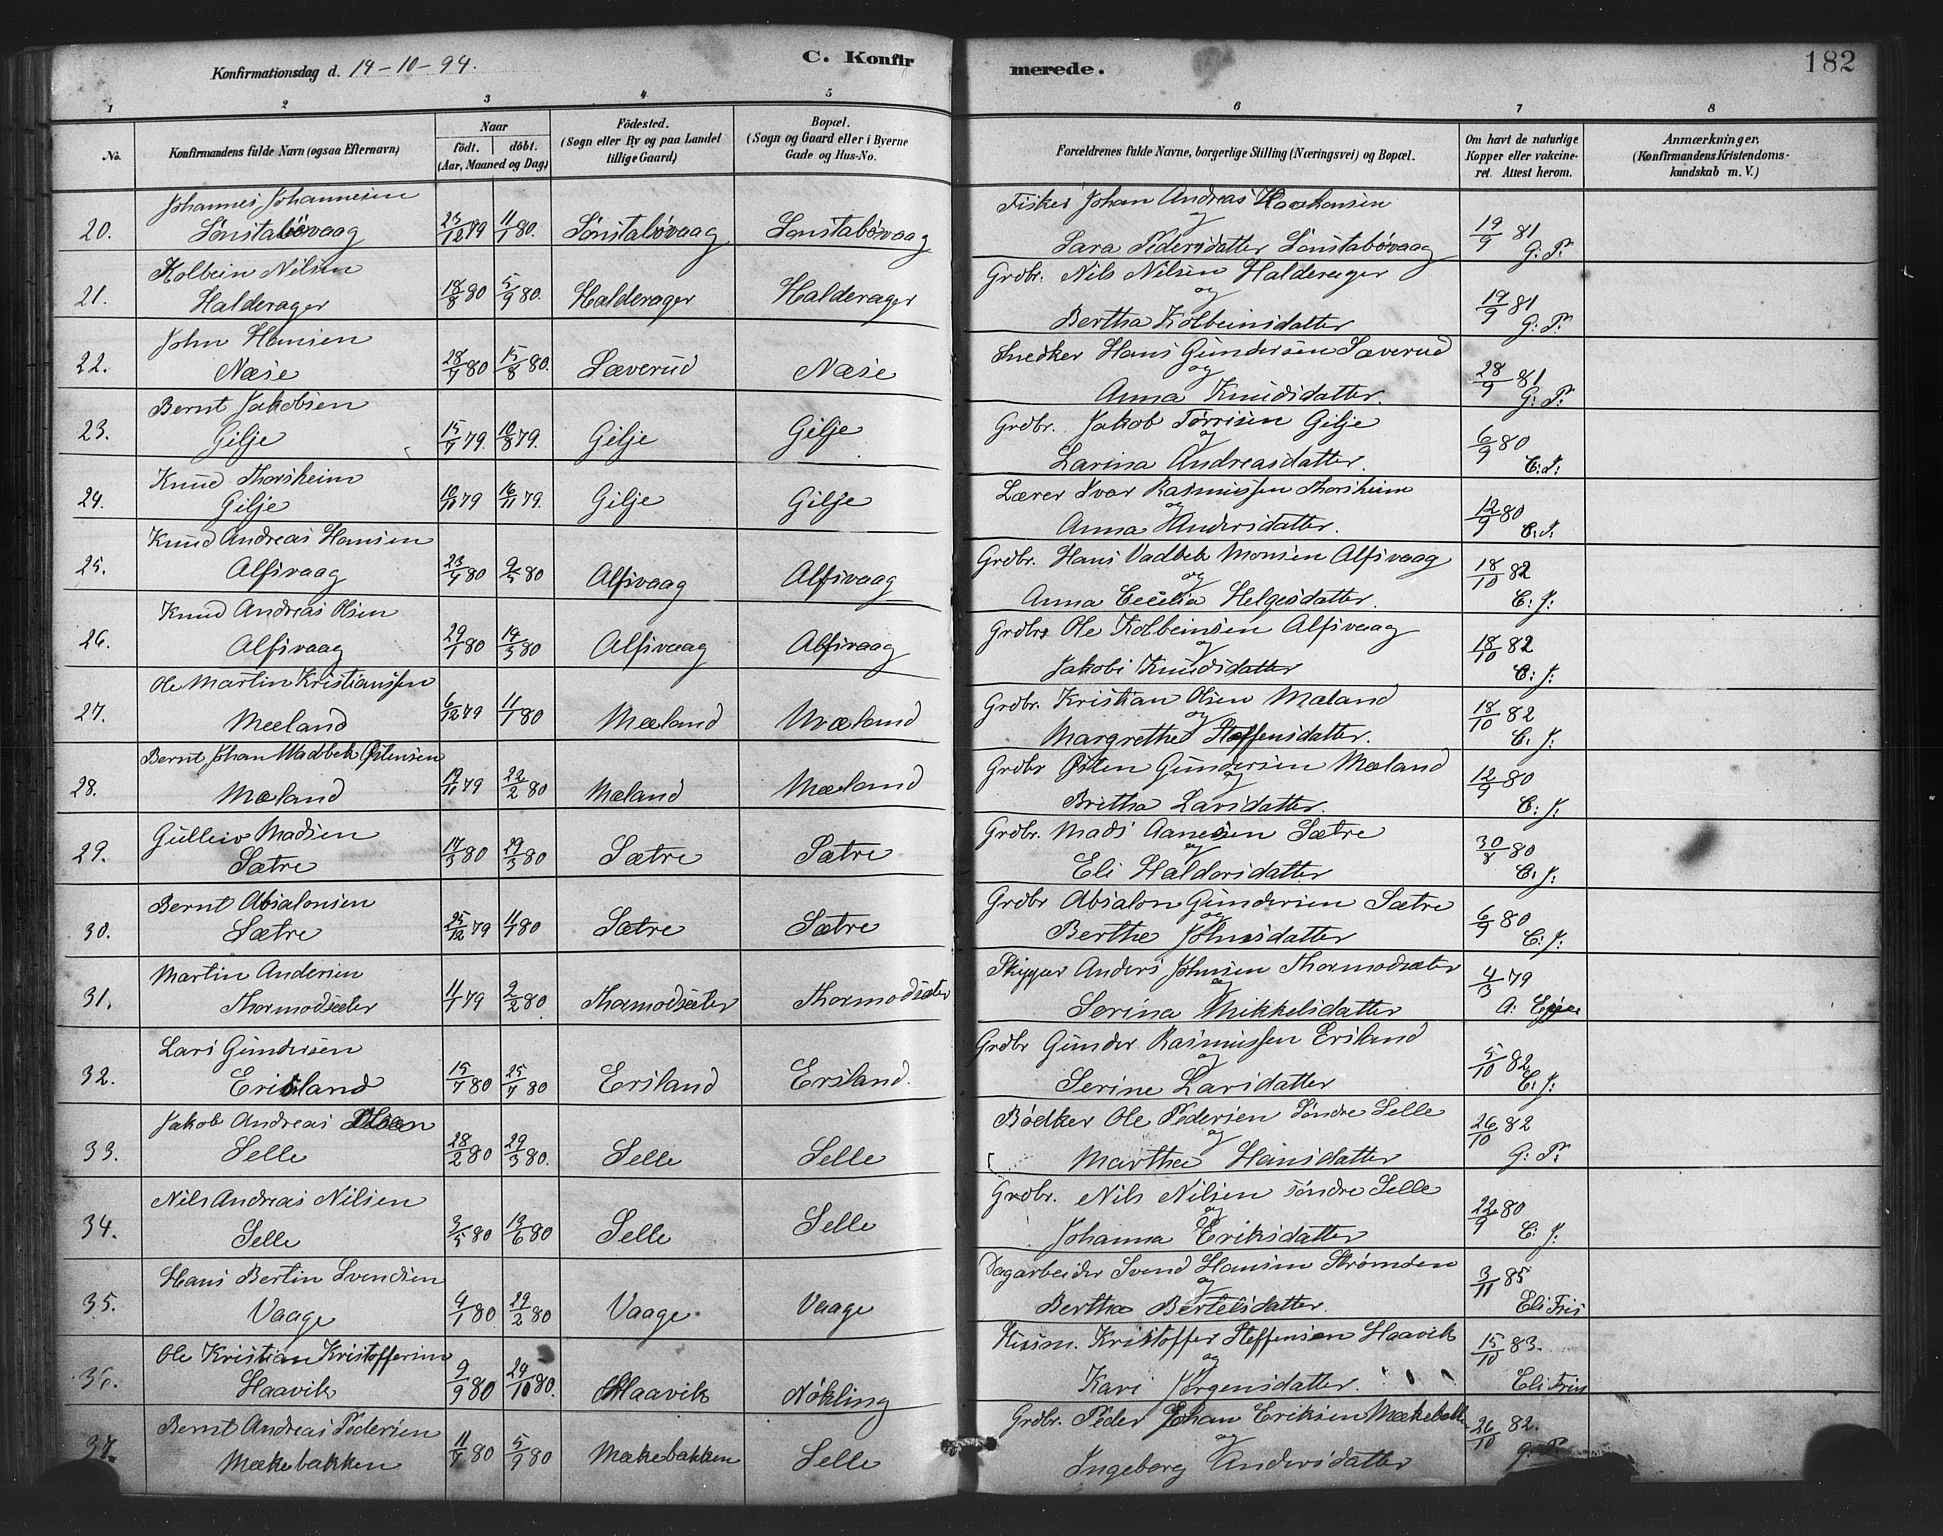 182
C. Konfirmerede.
Konfirmationsdag d. 14-10-94.
1 2 3 4 5 6 7 8
No. Konfirmandens fulde Navn (ogsaa Efternavn) Naar födt. döbt. (Aar, Maaned og Dag) Födested. (Sogn eller By og paa Landet tillige Gaard) Bopæl. (Sogn og Gaard eller i Byerne Gade og Hus-No. Forældrenes fulde Navne, borgerlige Stilling (Næringsvei) og Bopæl. Om havt de naturlige Kopper eller vakcineret. Attest herom. Anmærkninger, (Konfirmandens Kristendomskundskab m. V.)
Johannes Johannesen Fisker Johan Andreas
20. Sønstabøvaag 11/1 80. Sønstabøvaag Sønstabøvaag og 19/9 81
Sara Pedersdatter Sønstabøvaag G. P.
Kolbein Nilsen Grdbr. Nils Nilsen Halderager
21. Halderager 18/8 80 5/9 80. Halderager Halderager og 19/9 81
Bertha Kolbeinsdatter G. P.
John Hansen Snedker Hans Gundersen Sæverud
22. Næse 15/8 80. Sæverud Næse og 28/9 81
Anna Knudsdatter. G. P.
Bernt Jakobsen Grdbr. Jakob Tørrisen Gilje
23. Gilje 15/7 79. 10/8 79. Gilje Gilje og 6/9 80
Larina Andreasdatter. C. J.
Knud Thorsheim Lærer Ivar Rasmussen Thorsheim
24. Gilje 16/11 79. Gilje Gilje og 12/9 80
Anna Andersdatter. C. J.
Knud Andreas Hansen Grdbr. Hans Vadbek Monsen Alfsvaag
25. Alfsvaag 9/5 80 Alfsvaag Alfsvaag og 18/10 82
Anna Cecilia Helgesdatter. C. J.
Knud Andreas Olsen Grdbr. Ole Kolbeinsen Alfsvaag
26. Alfsvaag 29/1 80 Alfsvaag Alfsvaag og 18/10 82
Jakobi Knudsdatter C. J.
Ole Martin Kristianssen Grdbr. Kristian Olsen Mæland
27. Mæland 6/12 79 11/1 80 Mæland Mæland og 18/10 82
Margrethe Steffensdatter. C. J.
Bernt Johan Madbek Østensen Grdbr Østen Gundersen Mæland
28. Mæland 22/2 80 Mæland Mæland og 12/9 80
Britha Larsdatter. C. J.
Gulleiv Madsen Grdbr. Mads Aanesen Sætre
29. Sætre 29/3 80 Sætre Sætre og 30/8 80
Eli Haldorsdatter C. J.
Bernt Absalonsen Grdbr Absalon Gundersen Sætre
30. Sætre 25/12 79 11/1 80 Sætre Sætre og 6/9 80
Berthe Johnsdatter C. J.
Martin Andersen Skipper Anders Johnsen Thormodsæter
31. Thormodsæter 11/1 79 2/2 80. Thormodsæter Thormodsæter og 4/3 79
Serina Mikkelsdatter A.
Lars Gundersen Grdbr Gunder Rasmussen Ersland
32. Ersland 15/7 80 25/7 80 Ersland Ersland. og 5/10 82
Serine Larsdatter C. J.
Jakob Andreas Olsen Bødker Ole Pedersen Søndre Selle
33. Selle 28/2 80 29/3 80. Selle Selle og 26/10 82
Martha Hansdatter G. P.
Nils Andreas Nilsen Grdbr. Nils Nilsen Søndre Selle
34. Selle 3/5 80 13/6 80 Selle Selle og 22/9 80
Johanna Eriksdatter C. J.
Hans Bertin Svendsen Dagarbeider Svend Hansen Strømsen
35. Vaage 29/2 80 Vaage Vaage og 3/11 85
Bertha Bertelsdatter. Eli Friis
Ole Kristian Kristoffersen Husm. Kristoffer Steffensen Haavik
36. Haavik 9/9 80 24/10 80. Haavik Nøkling og 15/10 83.
Kari Jørgensdatter. Eli Friis
Bernt Andreas Pedersen Grdbr. Peder Johan Eriksen Mækebakk
37. Mækebakken 11/7 80 5/9 80 Mækebakken Selle og 26/10 82.
Ingeborg Andersdatter G. P.